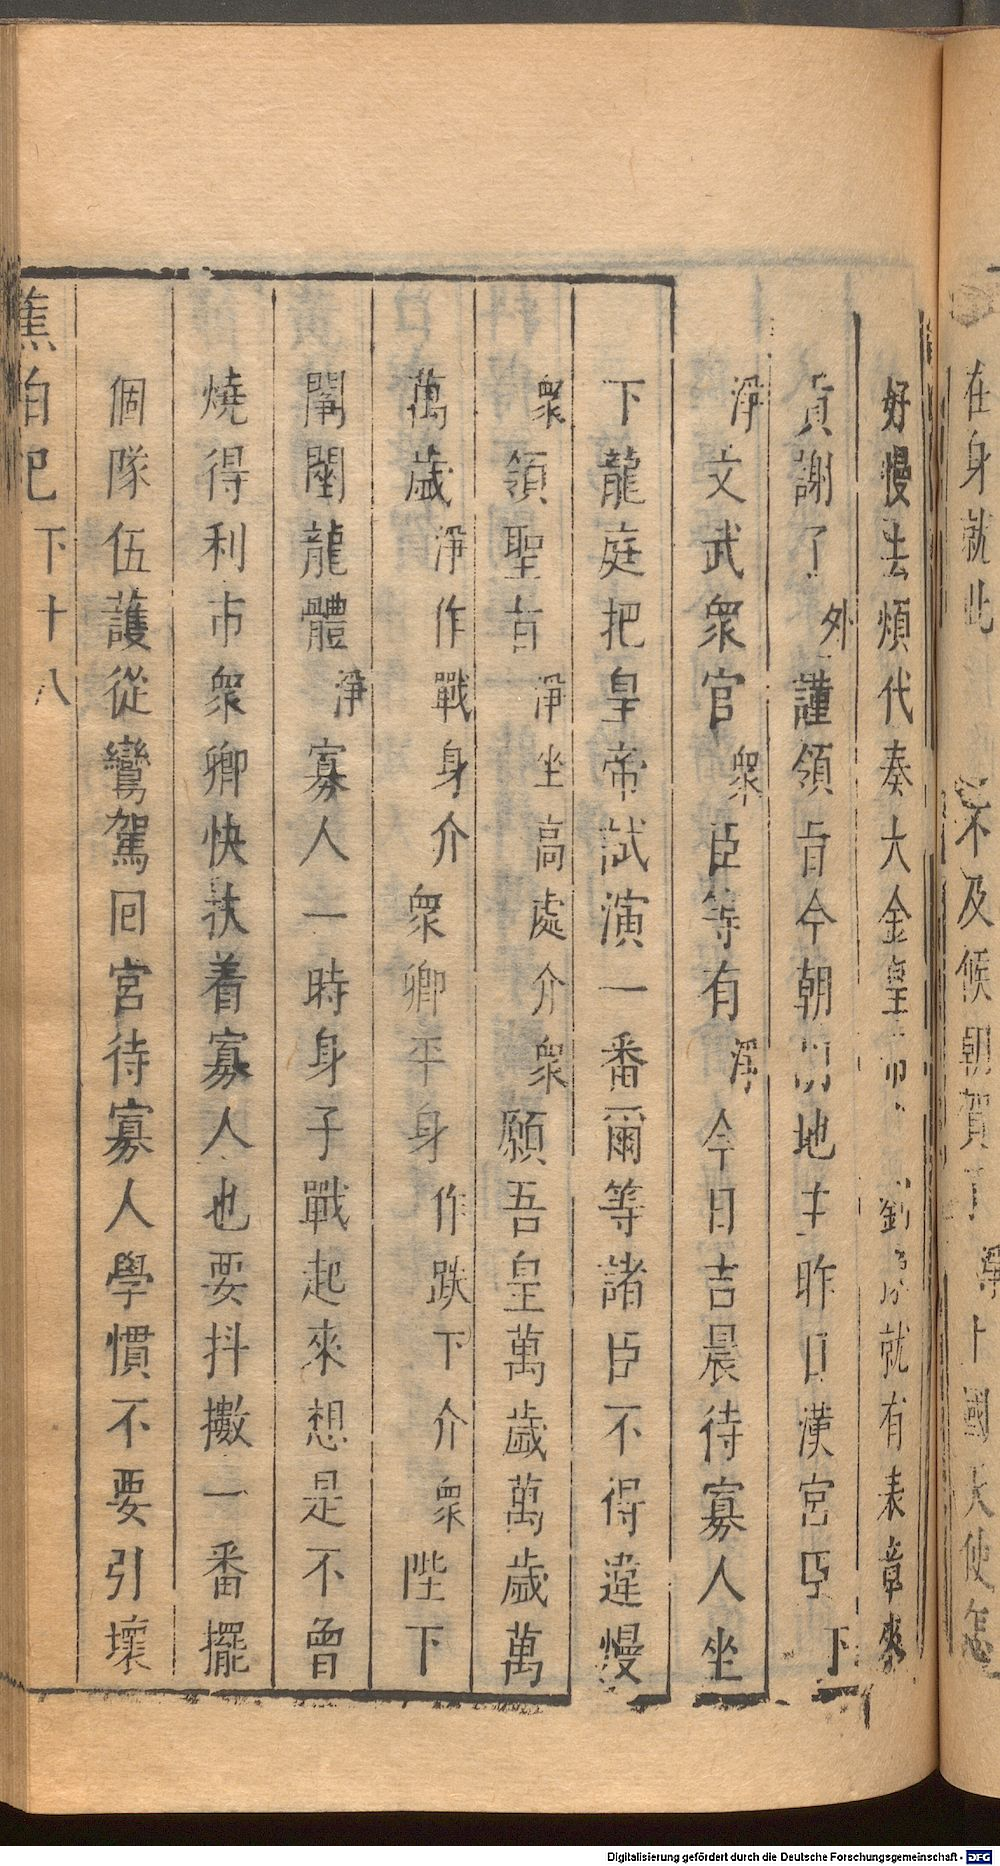 在身就此 不及候朝賀了淨十國大使怎
好慢去煩代奏大金皇帝 劉 就有表章來
貢謝了外謹領旨今朝 地主昨日漢宮臣下
淨文武衆官衆臣等有淨今日吉晨待寡人坐
下龍庭把皇帝試演一番爾等諸臣不得違慢
衆領聖旨淨坐高處介衆願吾皇萬歲萬歲萬
萬歲淨作戰身介衆卿平身作跌下介衆陛下
鬧閣龍體淨寡人一時身子戰起來想是不曾
燒得利市衆卿快扶着寡人也要抖擻一番擺
個隊伍護從鸞駕回宮待寡人學慣不要引壞
蕉帕記 下十八
Digitalisierung gefördert durch die Deutsche Forschungsgemeinschaft - DFG